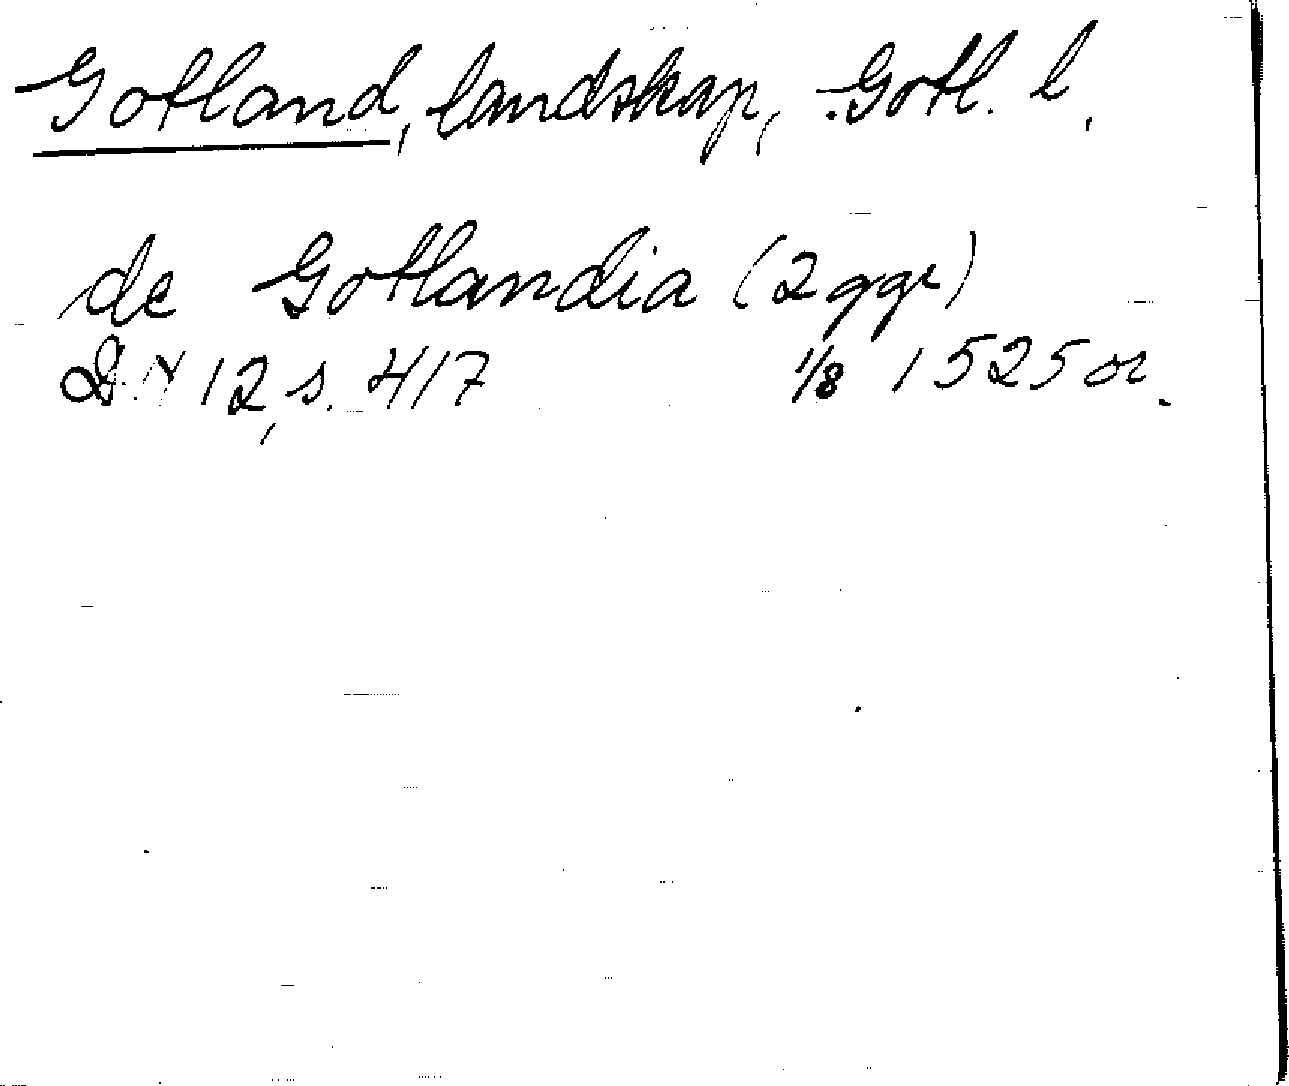 Gotland, landskap, Gotl. l.
de Gotlandia (2 ggr)
DN 12, s. 417 1/8 1525 or.